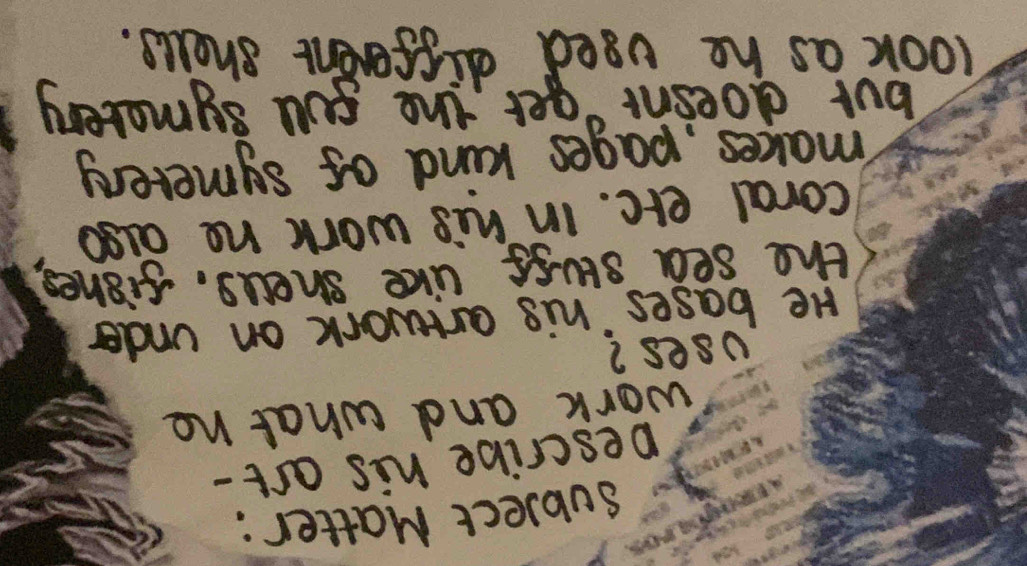 Subject Matter:
Describe his art-
work and what he
uses?
He bases his artwork on under
the sea stuff like shells, fishes,
coral etc. In his work he also
makes pages kind of symetery
but doesnt get the full symotery
look as he used different shells.